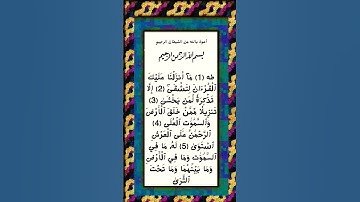 أعوذ بالله من الشيطان الرجيم
بسم الله الرحمن الرحيم
طه (1) مَآ أَنزَلْنَا عَلَيْكَ
ٱلْقُرْءَانَ لِتَشْقَىٰٓ (2) إِلَّا
تَذْكِرَةً لِّمَن يَخْشَىٰ (3)
تَنزِيلًا مِّمَّنْ خَلَقَ ٱلْأَرْضَ
وَٱلسَّمَٰوَٰتِ ٱلْعُلَى (4)
ٱلرَّحْمَٰنُ عَلَى ٱلْعَرْشِ
ٱسْتَوَىٰ (5) لَهُۥ مَا فِي
ٱلسَّمَٰوَٰتِ وَمَا فِي ٱلْأَرْضِ
وَمَا بَيْنَهُمَا وَمَا تَحْتَ
ٱلثَّرَىٰ